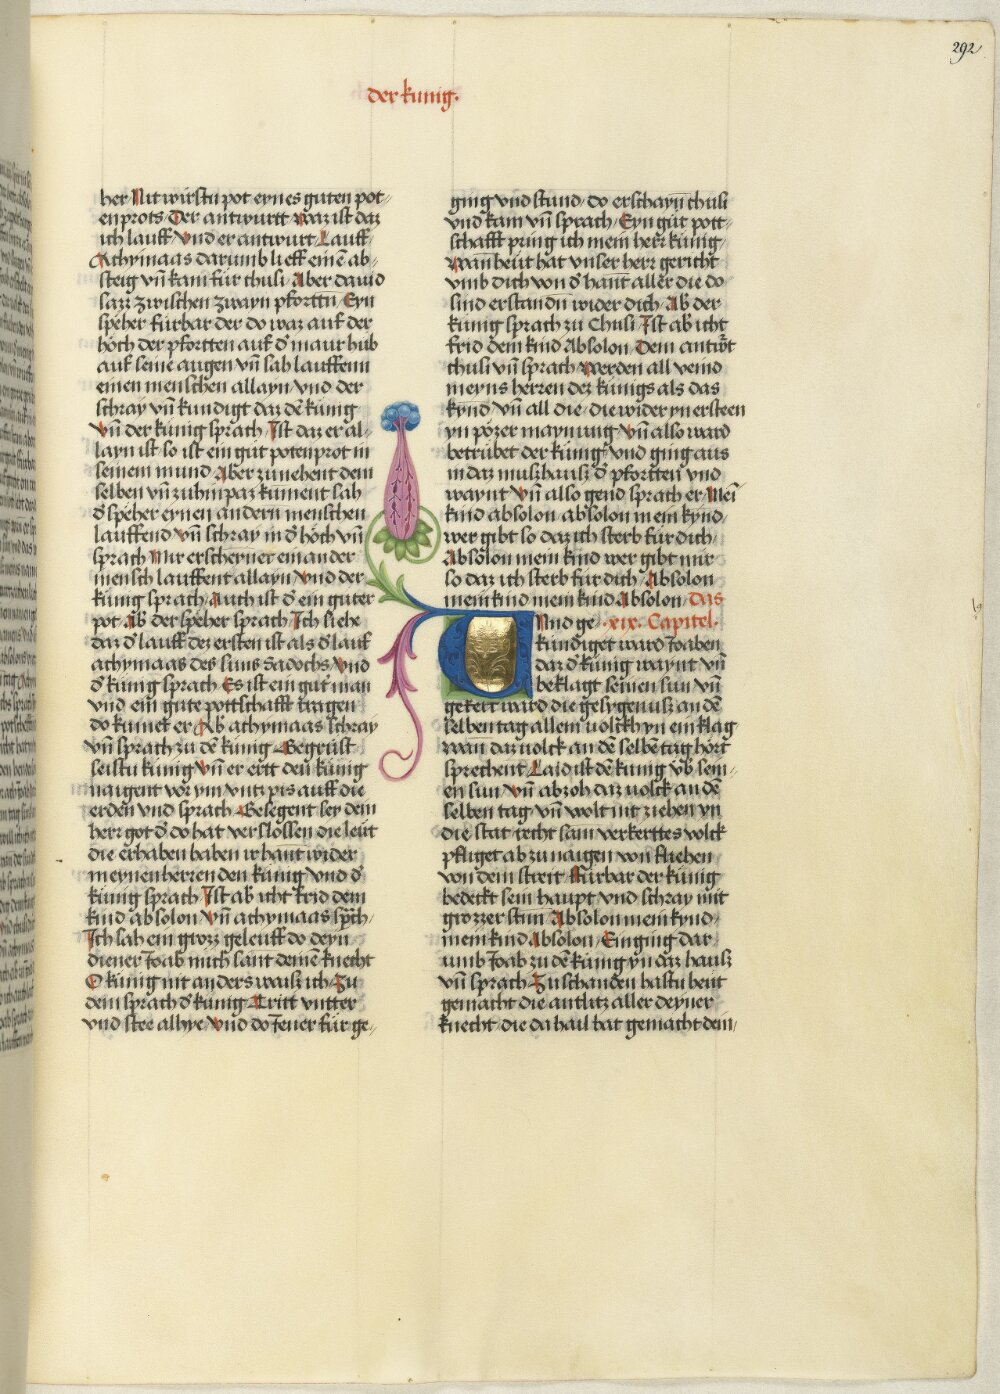 292
der kunig·
her Nit wirstu pot eyn es guten pot⸗
enprots· Der antwurtt waz ist daz
ich lauff Vnd er antwurt· Lauff⸗
Achymaas darumb lieff einē ab⸗
steig vn̄ kam für chusi Aber dauid
sazz zwischen zwayn pforttn· Eyn
speher fürbar der do waz auf der
höch der pfortten auf d̄ maur hub
auf seine augen vn̄ sah lauffenn
einen menschen allayn vnd der
schray vn̄ kundigt daz dē kunig
Vn̄ der kunig sprach Ist daz er al⸗
layn ist so ist ein gůt potenprot in
seinem mund Aber zunehent dem
selben vn̄ zuhinpaz kument sah
d̄ speher eynen andern menschen
lauffend vn̄ schray in d̄ höch vn̄
sprach Mir erscheinet ein ander
mensch lauffent allayn vnd der
kunig sprach Auch ist d̄ ein guter
pot Ab der speher sprach Ich siehe
daz d̄ lauff dez ersten ist als d̄ lauf
achymaas des suns Sadochs Vnd
d̄ kunig sprach Es ist ein gut man
vnd ein gute pottschafft tragen
do kumet er Ab achymaas schray
vn̄ sprach zu dē kunig Gegrüst
seistu kunig vn̄ er ertt den kunig
naigent vor ym vntz pis auff die
erden vnd sprach Gesegent sey dein
herr got d̄ do hat verslossen die leüt
die erhaben haben ir hant wider
meynen herren den kunig vnd d̄
kunig sprach Ist ab icht frid dem
kind absolon Vn̄ achymaas sp̄ch
Ich sah ein grozz geleuff do deyn
diener Joab mich sant deinē knecht
O kunig nit anders waisz ich Zu
dem sprach d̄ kunig Tritt vntter
vnd stee alhye Vnd do Jener für ge⸗
ging vnd stund· do erschayn̄ chusi
vnd kam vn̄ sprach Eyn gůt pott⸗
schafft pring ich mein herr kunig·
Wann heüt hat vnser herr gericht
vmb dich von d̄ hant aller die do
sind erstandn̄ wider dich· Ab der
kunig sprach zu Chusi Ist ab icht
frid dem kind Absolon Dem antw̄t
chusi vn̄ sprach werden all veind
meyns herren dez kunigs als das
kynd vn̄ all die die wider yn ersteen
yn pözer maynung Vn̄ also ward
betrübet der kunig vnd ging aus
in daz muszhausz d̄ pfortten vnd
waynt Vn̄ also gend sprach er Mein̄
kind absolon absolon mein kynd·
wer gibt so daz ich sterb für dich
Absolon mein kind wer gibt mir
so daz ich sterb fur dich Absolon
mein kind mein kind Absolon· Das
Und ge· xix· Capitel·
kundiget ward Joaben
daz d̄ kunig waynt vn̄
beklagt seinen sun vn̄
gekert ward die gesygenusz an dē
selben tag allem volckh yn ein klag
wan daz volck an dē selbē tag hört
sprechent Laid ist dē kunig vb̄ sein⸗
en sun Vn̄ abzoh daz volck an dē
selben tag vn̄ wolt nit ziehen yn
die stat recht sam verkerttes volck
pfliget ab zu naigen von fliehen
von dem streit Fürbar der kunig
bedeckt sein haupt vnd schray mit
grozzer stim Absolon mein kynd·
mein kind Absolon Einging dar⸗
umb Joab zu dē kunig yn daz hausz
vn̄ sprach Zu schanden hastu heüt
gemacht die antlutz aller deyner
knecht die da hail hat gemacht dein⸗